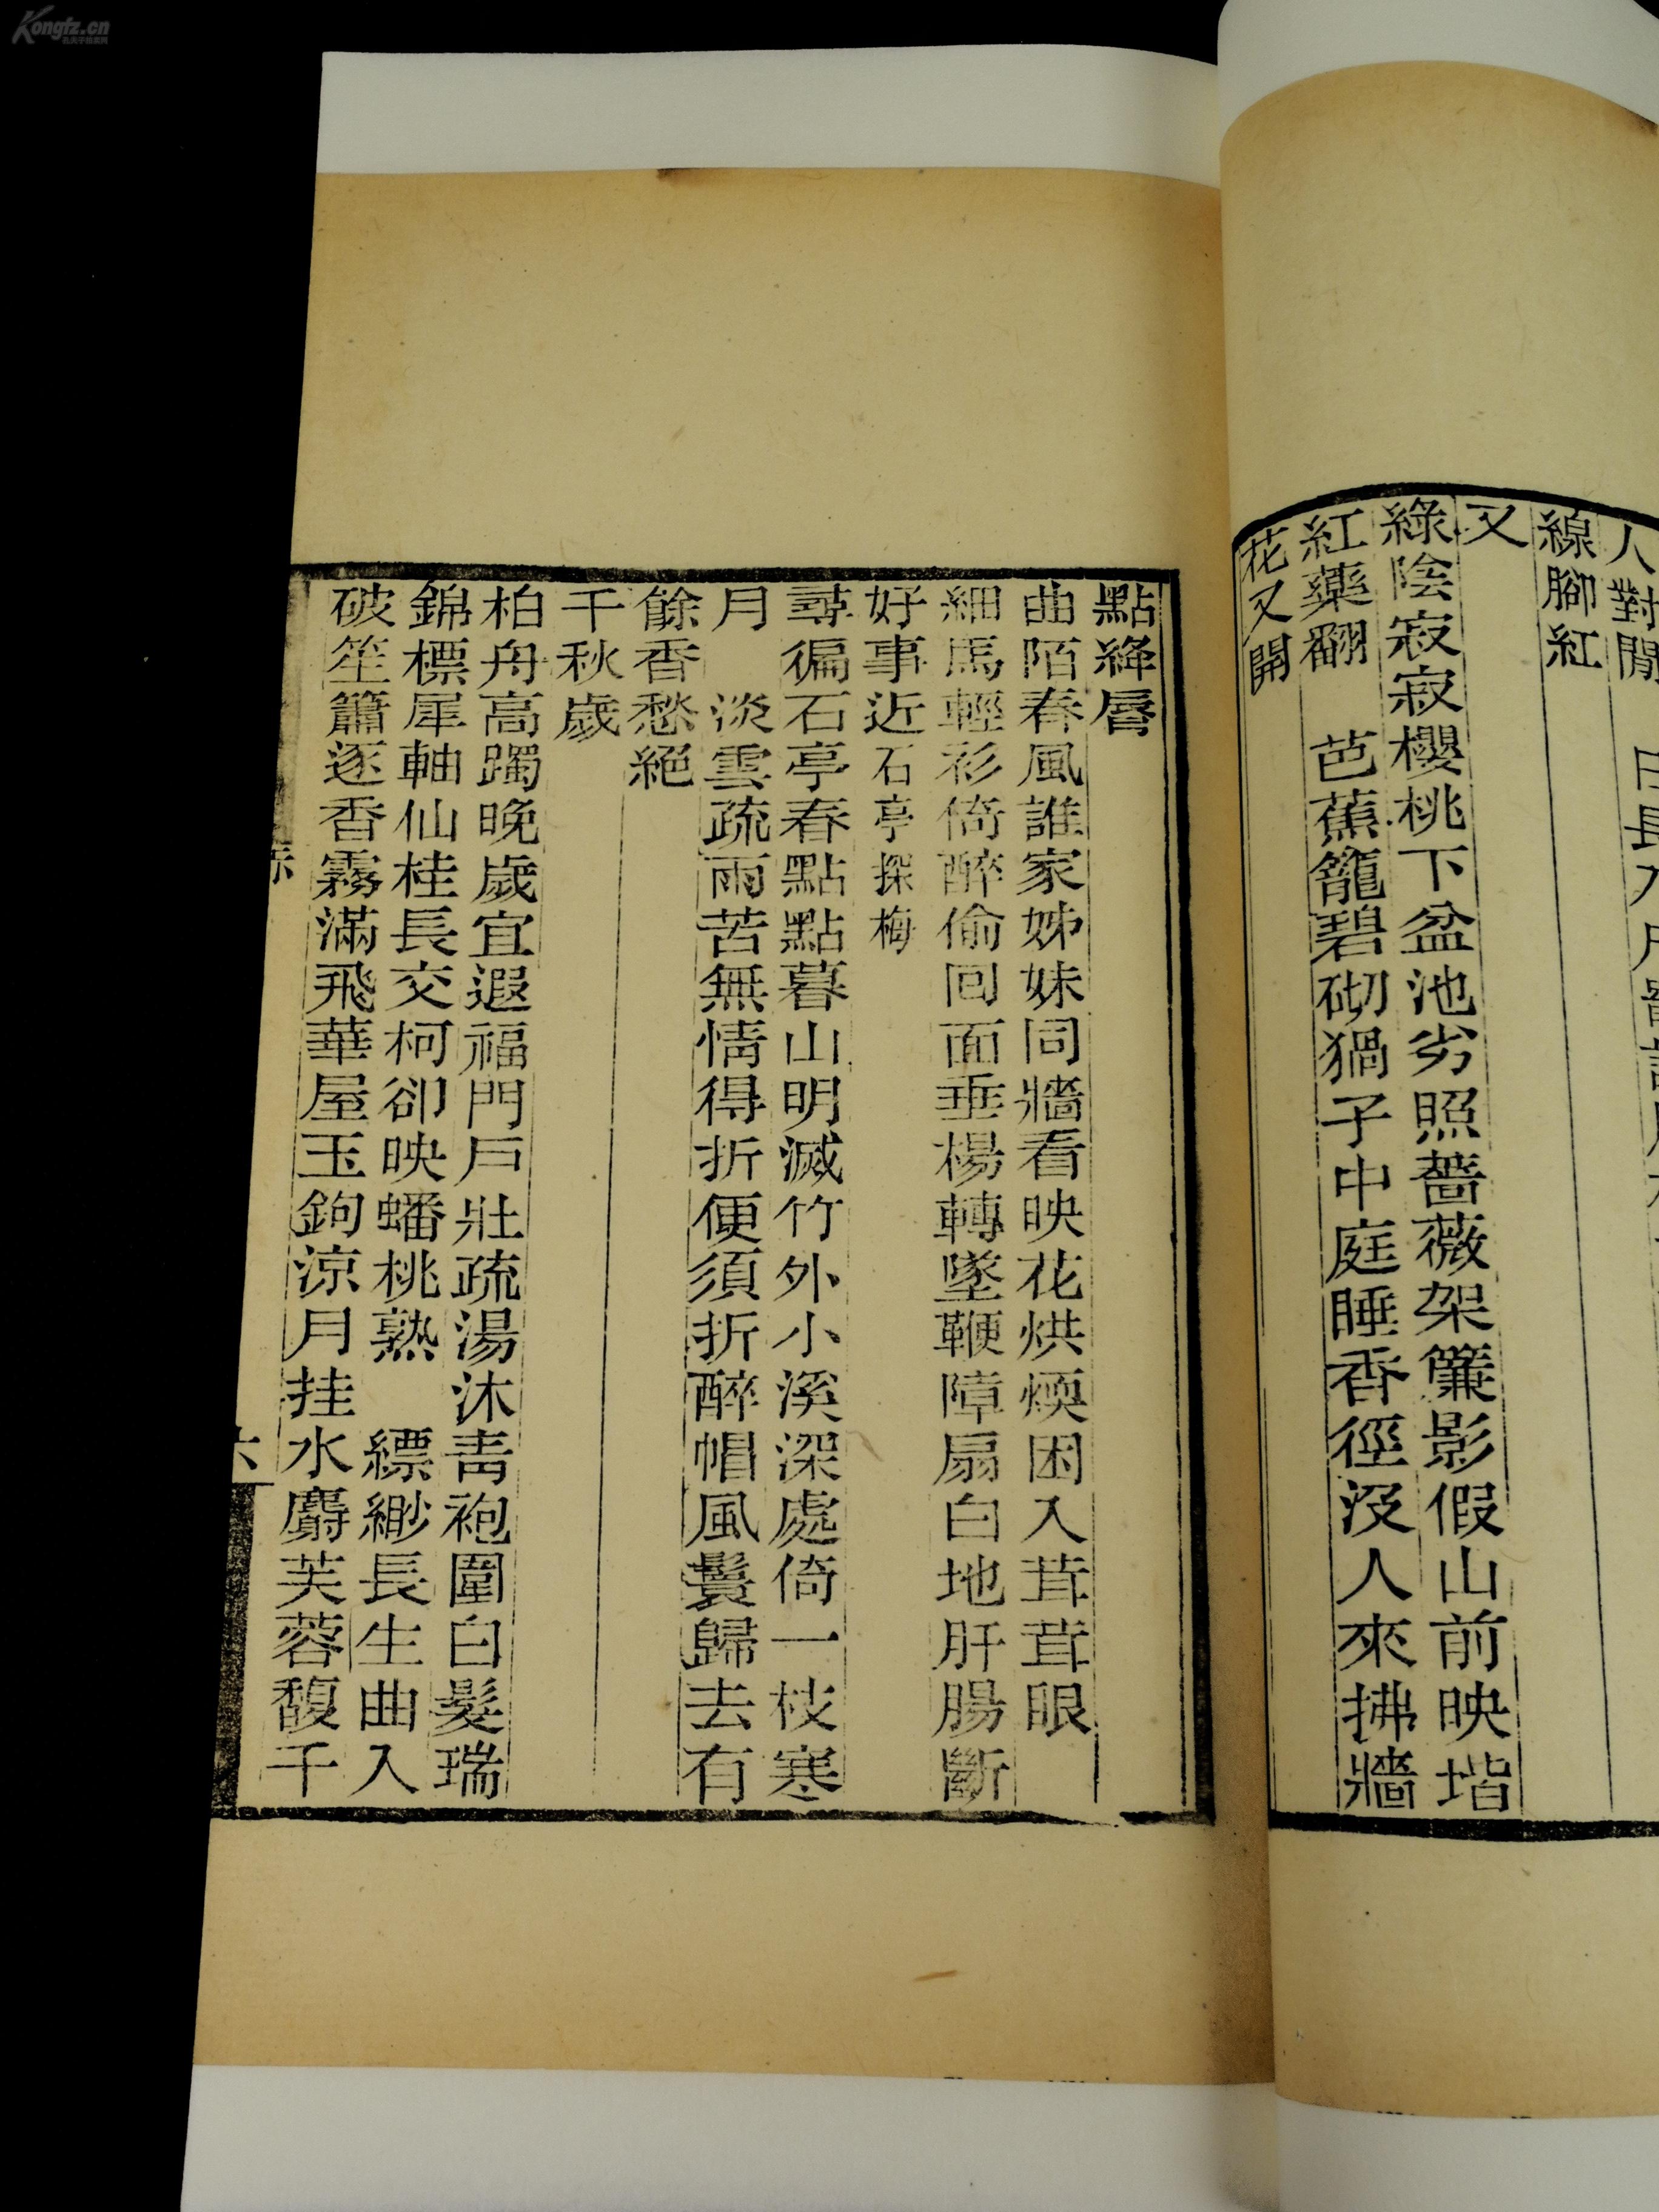 Kongfz.cn
人對閒
線腳紅
又
綠陰寂寂櫻桃下盆池劣照薔薇架簾影假山前映堦
紅藥翻　芭蕉籠碧砌猧子中庭睡香徑沒人來拂牆
花又開
點絳脣
曲陌春風誰家姊妹同牆看映花烘煗困入茸茸眼
細馬輕衫倚醉偷回面垂楊轉墜鞭障扇白地肝腸斷
好事近石亭探梅
尋徧石亭春點點暮山明滅竹外小溪深處倚一枝寒
月　淡雲疏雨苦無情得折便須折醉帽風鬟歸去有
餘香愁絕
千秋歲
柏舟高躅晚歲宜遐福門戶壯疏湯沐青袍圍白髮瑞
錦標犀軸仙桂長交柯卻映蟠桃熟　縹緲長生曲入
破笙簫逐香霧滿飛華屋玉鉤涼月挂水麝芙蓉馥千
六